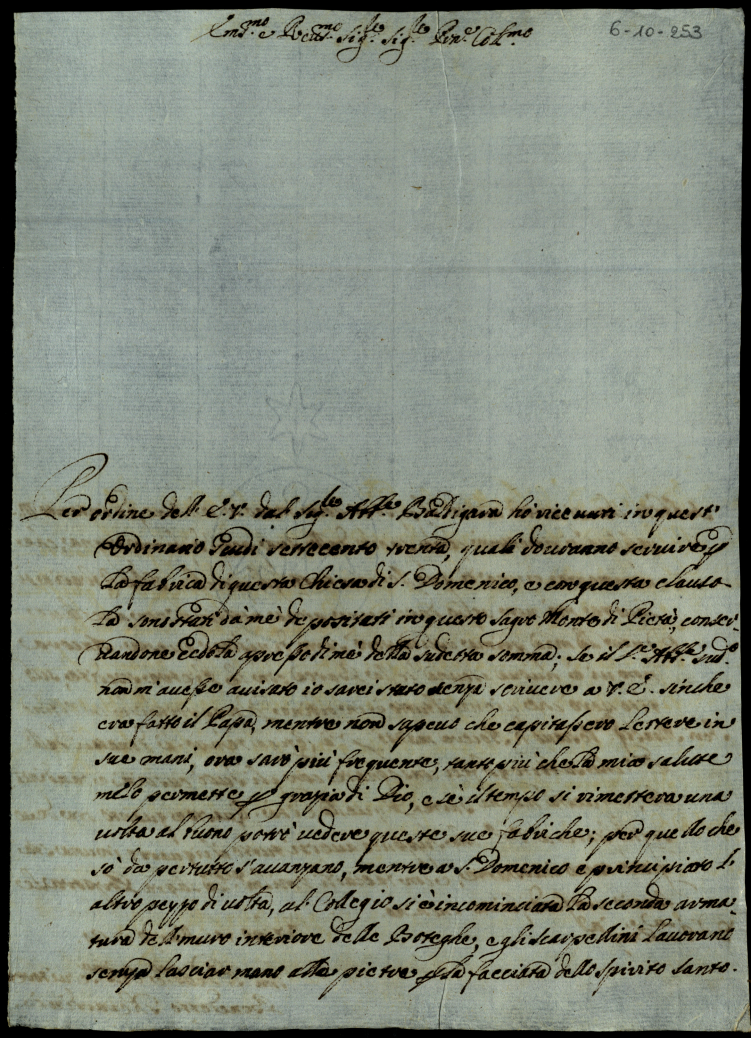 Em.mo e Rev.mo Sig.re Sig.re Pron.e Col.mo
6-10-253
Per ordine dell' E.V. dal Sig.re Abb.e Baldigara hò ricevuti in quest'
Ordinario scudi settecento trenta, quali dovranno servire p
la fabrica di questa Chiesa di S. Domenico, e con questa clauso-
la sono stati da mè depositati in questo Sagro Monte di Pietà, conser-
vandone cedola apresso di mè della sudetta somma; se il S.r Abb.e sud.o
non m'avesse avisato io sarei stato senza scrivere a V.E. sinche
era fatto il Papa, mentre non sapevo che capitassero lettere in
sue mani, ora sarò più frequente, tanto più che la mia salute
melo permette p grazia di Dio, e sè il tempo si rimettera una
volta al buono potrò vedere queste sue fabriche; per quello che
sò da pertutto s'avanzano, mentre a S. Domenico è principiato l'
altro pezzo di volta, al Collegio si è incominciata la seconda arma-
tura del muro interiore delle Boteghe, e gli scarpellini lavorano
senza lasciar mano alla pietre p la facciata dello Spirito Santo.